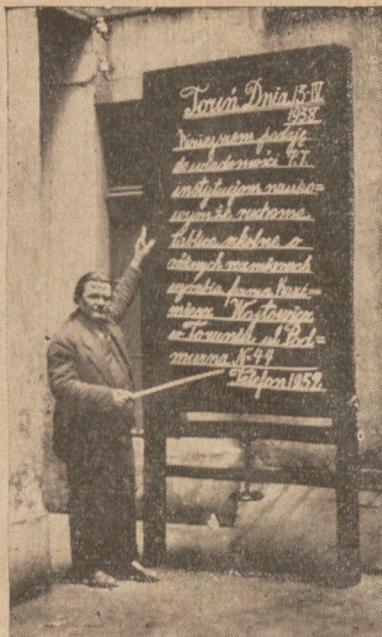 Toruń Dnia 13·IV
1938
Niniejszem podaję
do wiadomości P.T.
instytucjom nauko=
wym że ruchome
tablice szkolne o
różnych rozmiarach
wyrabia firma Kazi=
mierz
w Toruniu ul. Pod=
murna № 44
Telefon 1952.